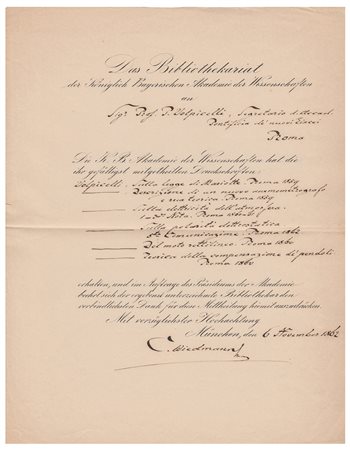 Das Bibliothekariat
der Königlich Bayerischen Akademie der Wissenschaften
an
Sigr Prof. P. Volpicelli, Segretario d. Accad.
Pontificia di nuovi Lincei
Roma
Die K. B. Akademie der Wissenschaften hat die
ihr gefälligst mitgetheilten Druckschriften:
Volpicelli, Sulla legge di Mariotte. Roma 1859
Descrizione di un nuovo anemometrografo
e sua teorica. Roma 1859
Sulla elettricità dell'atmosfera.
Nota. Roma
Sulla polarità elettrostatica
Comunicazione. Roma 1862
Del moto rettilineo. Roma 1860
Teorica della compensazione de' pendoli
Roma 1860
erhalten, und im Auftrage des Präsidiums der Akademie
beehrt sich der ergebenst unterzeichnete Bibliothekar den
verbindlichsten Dank für diese Mittheilung hiemit auszudrücken.
Mit vorzüglichster Hochachtung
München, den 6 November 1862
C. Wiedmann